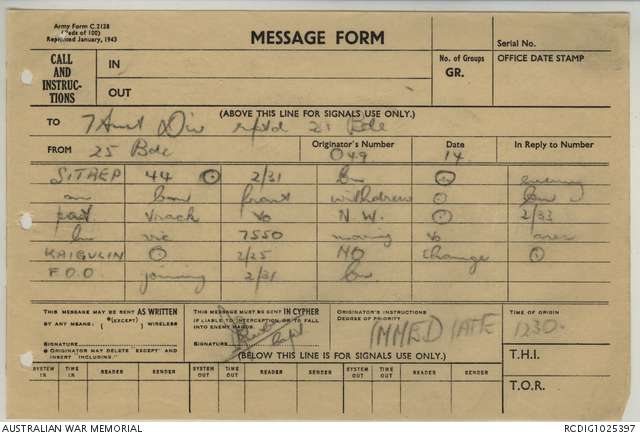 Army Form C.2128
(Pads of 100)
Reprinted January, 1943
MESSAGE FORM
Serial No.
CALL AND INSTRUC-TIONS
IN
OUT
No. of Groups
GR.
OFFICE DATE STAMP
(ABOVE THIS LINE FOR SIGNALS USE ONLY.)
TO 7 Aust Div rptd 21 Bde
FROM 25 Bde
Originator's Number 049
Date 14
In Reply to Number
SITREP 44 2/31 Bn
Bn front withdrew
past track to N.W. 2/33
Bn vic 7550 moving to area
KAIGULIN 2/25 NO change
F.O.O. joining 2/31 Bn
THIS MESSAGE MAY BE SENT AS WRITTEN BY ANY MEANS. { *(EXCEPT) } WIRELESS
SIGNATURE
* ORIGINATOR MAY DELETE "EXCEPT" AND INSERT "INCLUDING."
THIS MESSAGE MUST BE SENT IN CYPHER IF LIABLE TO INTERCEPTION OR TO FALL INTO ENEMY HANDS.
SIGNATURE Capt
ORIGINATOR'S INSTRUCTIONS DEGREE OF PRIORITY
IMMEDIATE
TIME OF ORIGIN
1230
(BELOW THIS LINE IS FOR SIGNALS USE ONLY.)
T.H.I.
SYSTEM IN
TIME IN
READER
SENDER
SYSTEM OUT
TIME OUT
READER
SENDER
SYSTEM OUT
TIME OUT
READER
SENDER
T.O.R.
AUSTRALIAN WAR MEMORIAL
RCDIG1025397